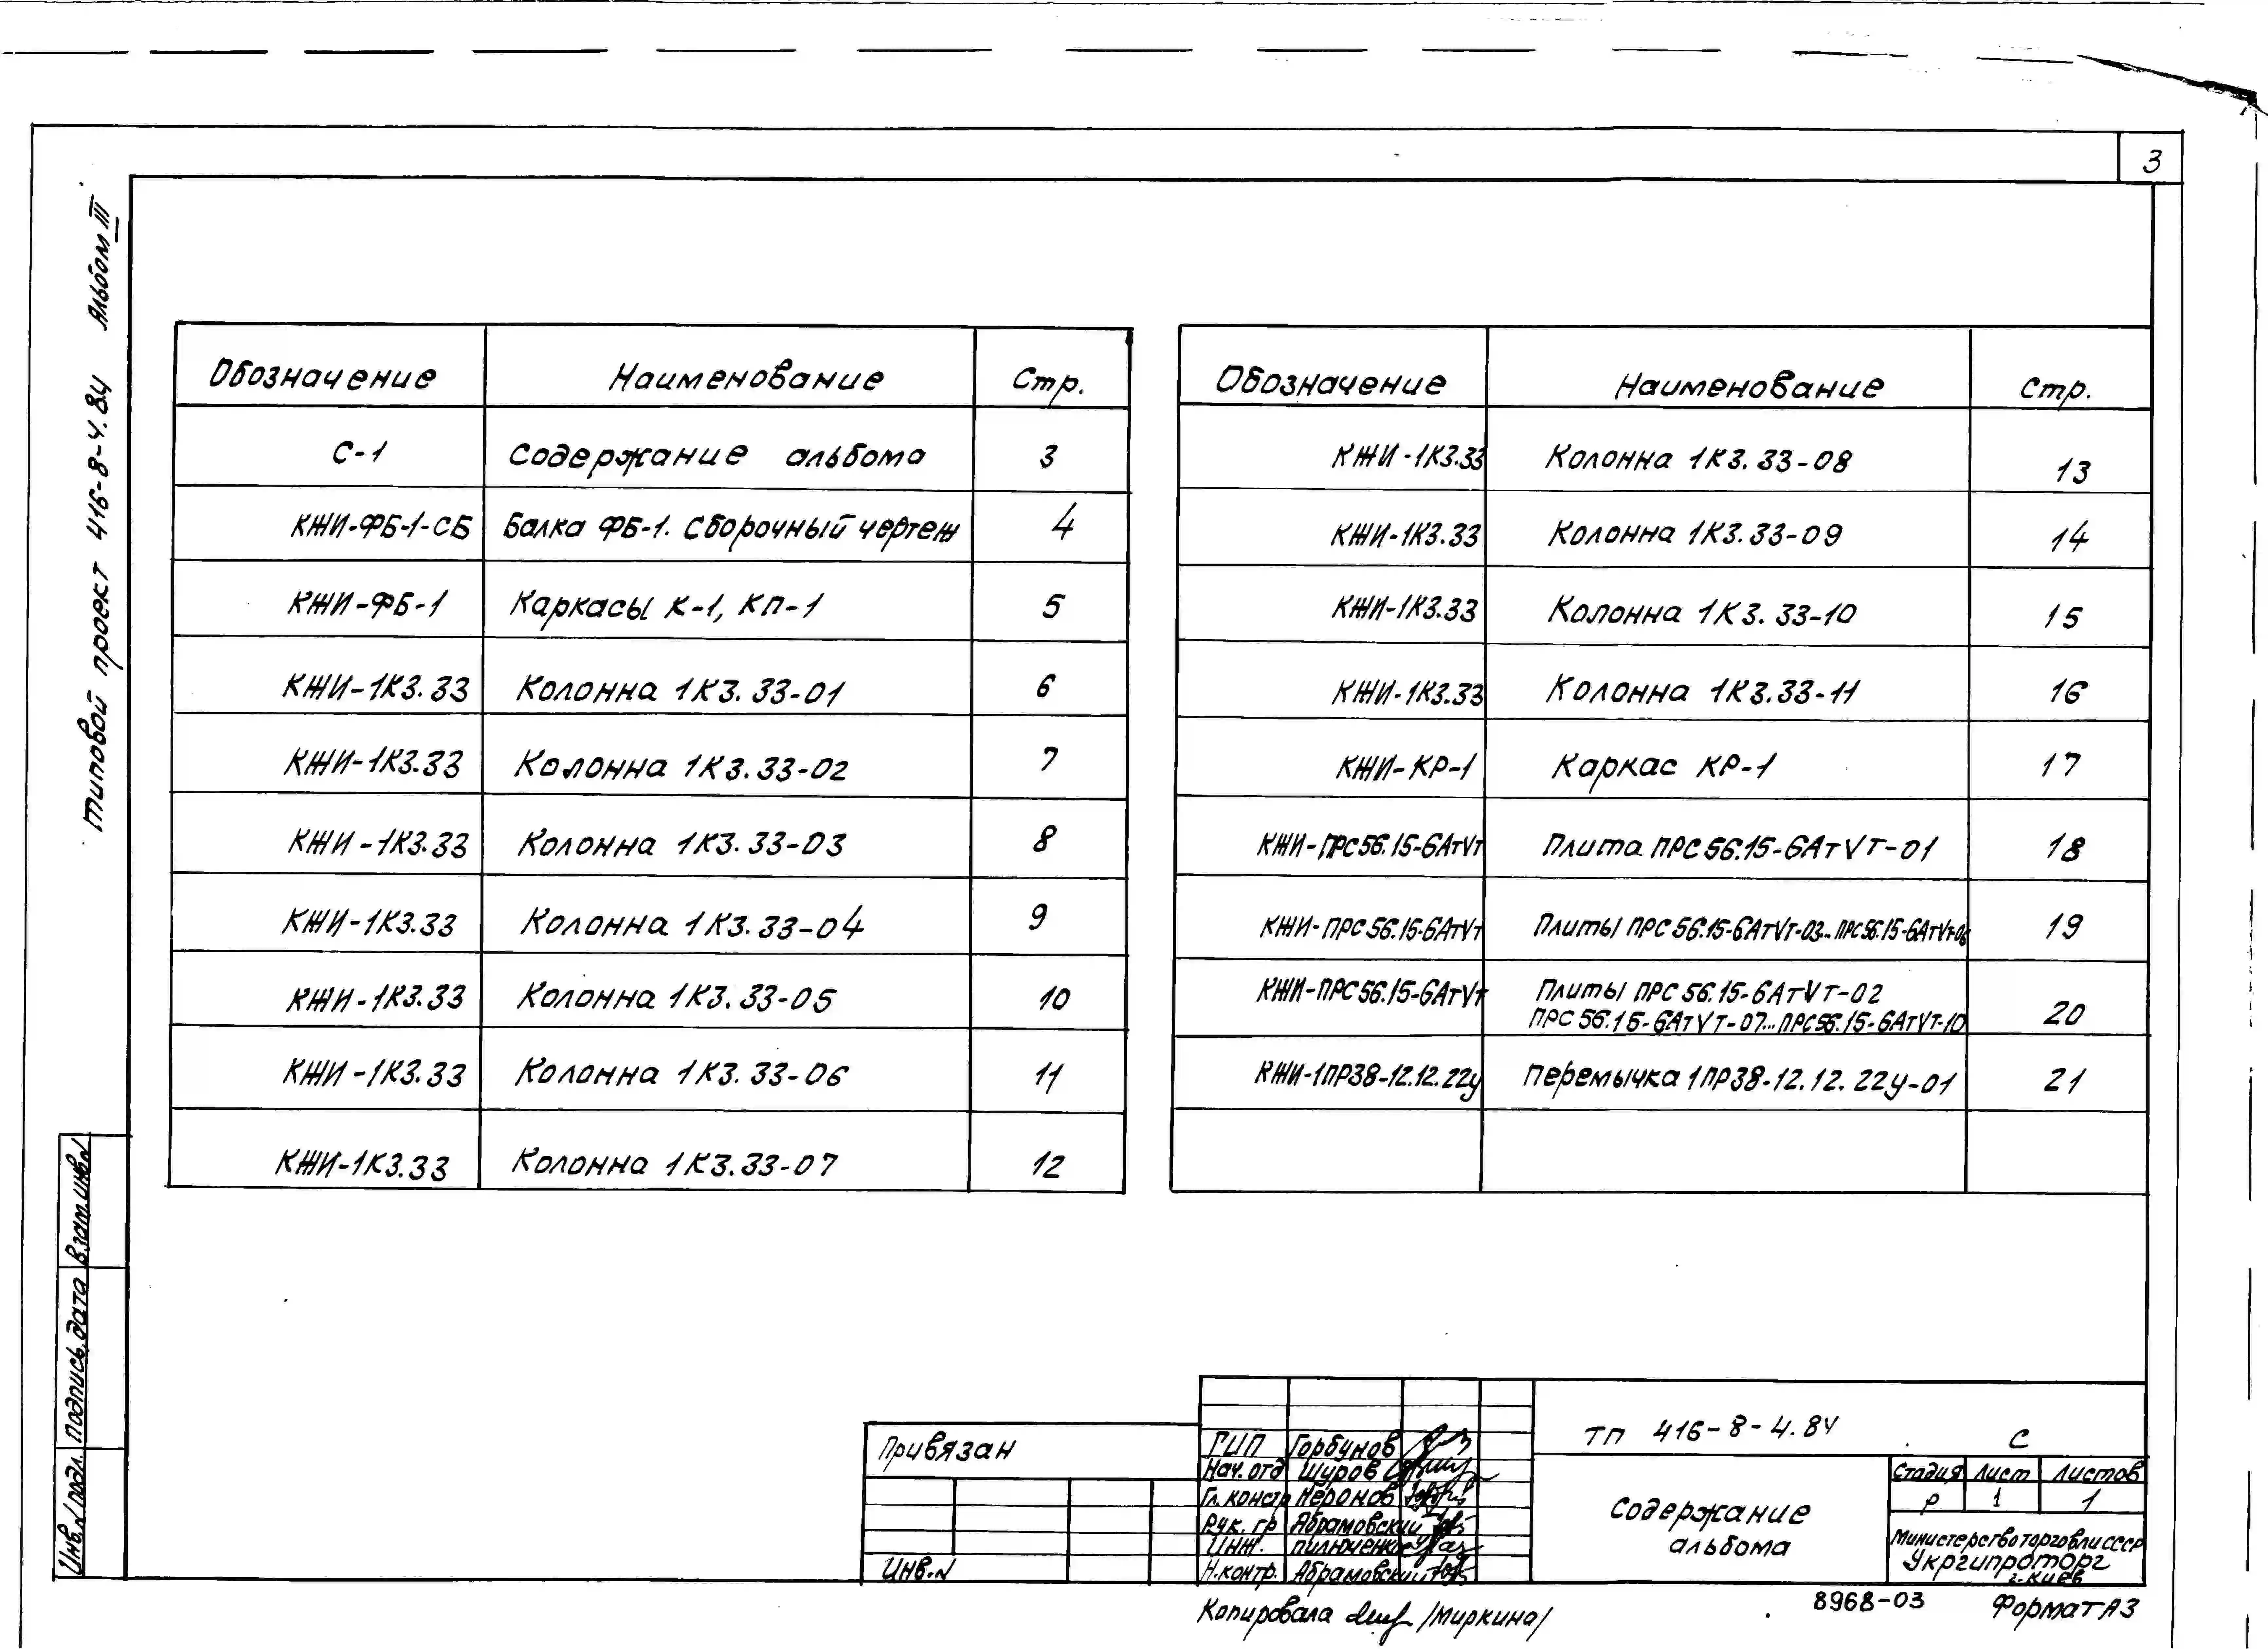 3
Типовой проект 416-8-4.84 Альбом III
Обозначение Наименование Стр.
С-1 Содержание альбома 3
КЖИ-ФБ-1-СБ Балка ФБ-1. Сборочный чертеж 4
КЖИ-ФБ-1 Каркасы К-1, КП-1 5
КЖИ-1К3.33 Колонна 1К3.33-01 6
КЖИ-1К3.33 Колонна 1К3.33-02 7
КЖИ-1К3.33 Колонна 1К3.33-03 8
КЖИ-1К3.33 Колонна 1К3.33-04 9
КЖИ-1К3.33 Колонна 1К3.33-05 10
КЖИ-1К3.33 Колонна 1К3.33-06 11
КЖИ-1К3.33 Колонна 1К3.33-07 12
Обозначение Наименование Стр.
КЖИ-1К3.33 Колонна 1К3.33-08 13
КЖИ-1К3.33 Колонна 1К3.33-09 14
КЖИ-1К3.33 Колонна 1К3.33-10 15
КЖИ-1К3.33 Колонна 1К3.33-11 16
КЖИ-КР-1 Каркас КР-1 17
КЖИ-ПРС56.15-6АтVт Плита ПРС56.15-6АтVТ-01 18
КЖИ-ПРС56.15-6АтVт Плиты ПРС56.15-6АтVт-03...ПРС56.15-6АтVт-06 19
КЖИ-ПРС56.15-6АтVт Плиты ПРС56.15-6АтVт-02
ПРС56.15-6АтVТ-07...ПРС56.15-6АтVТ-10 20
КЖИ-1ПР38-12.12.22у Перемычка 1ПР38-12.12.22у-01 21
Инв.N подл. Подпись, дата Взам.инв.N
Привязан
Инв.N
ГИП Горбунов
Нач. отд Шуров
Гл. констр Неронов
Рук. гр Абрамовский
Инж. Пилюченко
Н.контр. Абрамовский
ТП 416-8-4.84 С
Содержание
альбома
Стадия Лист Листов
Р 1 1
Министерство торговли СССР
Укргипроторг
г. Киев
Копировала /Миркина/
8968-03 Формат А3